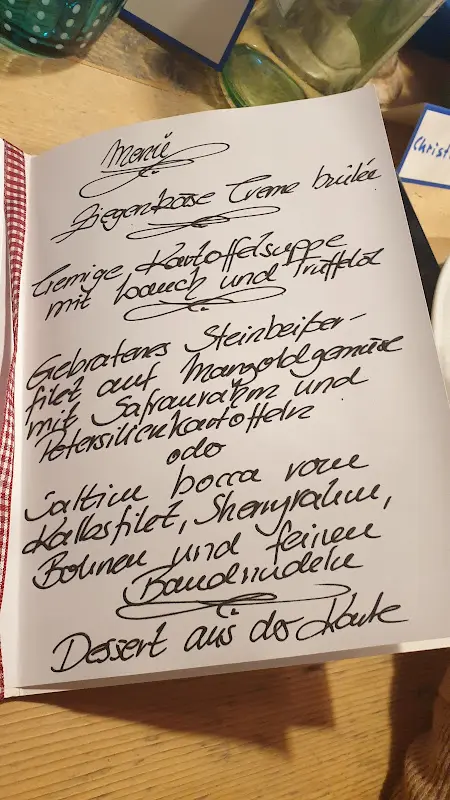 Menü
Ziegenkäse Creme brûlée
Cremige Kartoffelsuppe
mit Lauch und Trüffelöl
Gebratenes Steinbeißer-
filet auf Mangoldgemüse
mit Safranrahm und
Petersilienkartoffeln
oder
Saltim bocca vom
Kalbsfilet, Sherryrahm,
Bohnen und feinen
Bandnudeln
Dessert aus der Karte